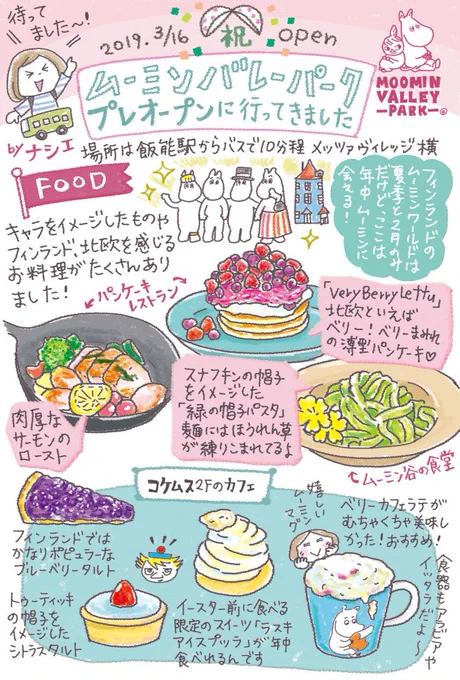 待って
ました〜!
2019.3/16
祝
open
ムーミンバレーパーク
プレオープンに行ってきました
MOOMIN
VALLEY
PARK
by ナシエ
場所は飯能駅からバスで10分程 メッツァヴィレッジ横
FOOD
フィンランドの
ムーミンワールドは
夏季と2月のみ
だけど、ここは
年中ムーミンに
会える!
キャラをイメージしたものや
フィンランド、北欧を感じる
お料理がたくさんあり
ました!
パンケーキ
レストラン
「Very Berry Lettu」
北欧といえば
ベリー!ベリーまみれ
の薄型パンケーキ♡
スナフキンの帽子
をイメージした
「緑の帽子パスタ」
麺にはほうれん草
が練りこまれてるよ
肉厚な
サーモンの
ロースト
ムーミン谷の食堂
コケムス2Fのカフェ
フィンランドでは
かなりポピュラーな
ブルーベリータルト
トゥーティッキ
の帽子を
イメージした
シトラスタルト
イースター前に食べる
限定のスイーツ「ラスキ
アイスプッラ」が年中
食べれるんです
嬉しい
ムーミン
マグ
ベリーカフェラテが
むちゃくちゃ美味し
かった!おすすめ!
食器もアラビアや
イッタラだよ〜